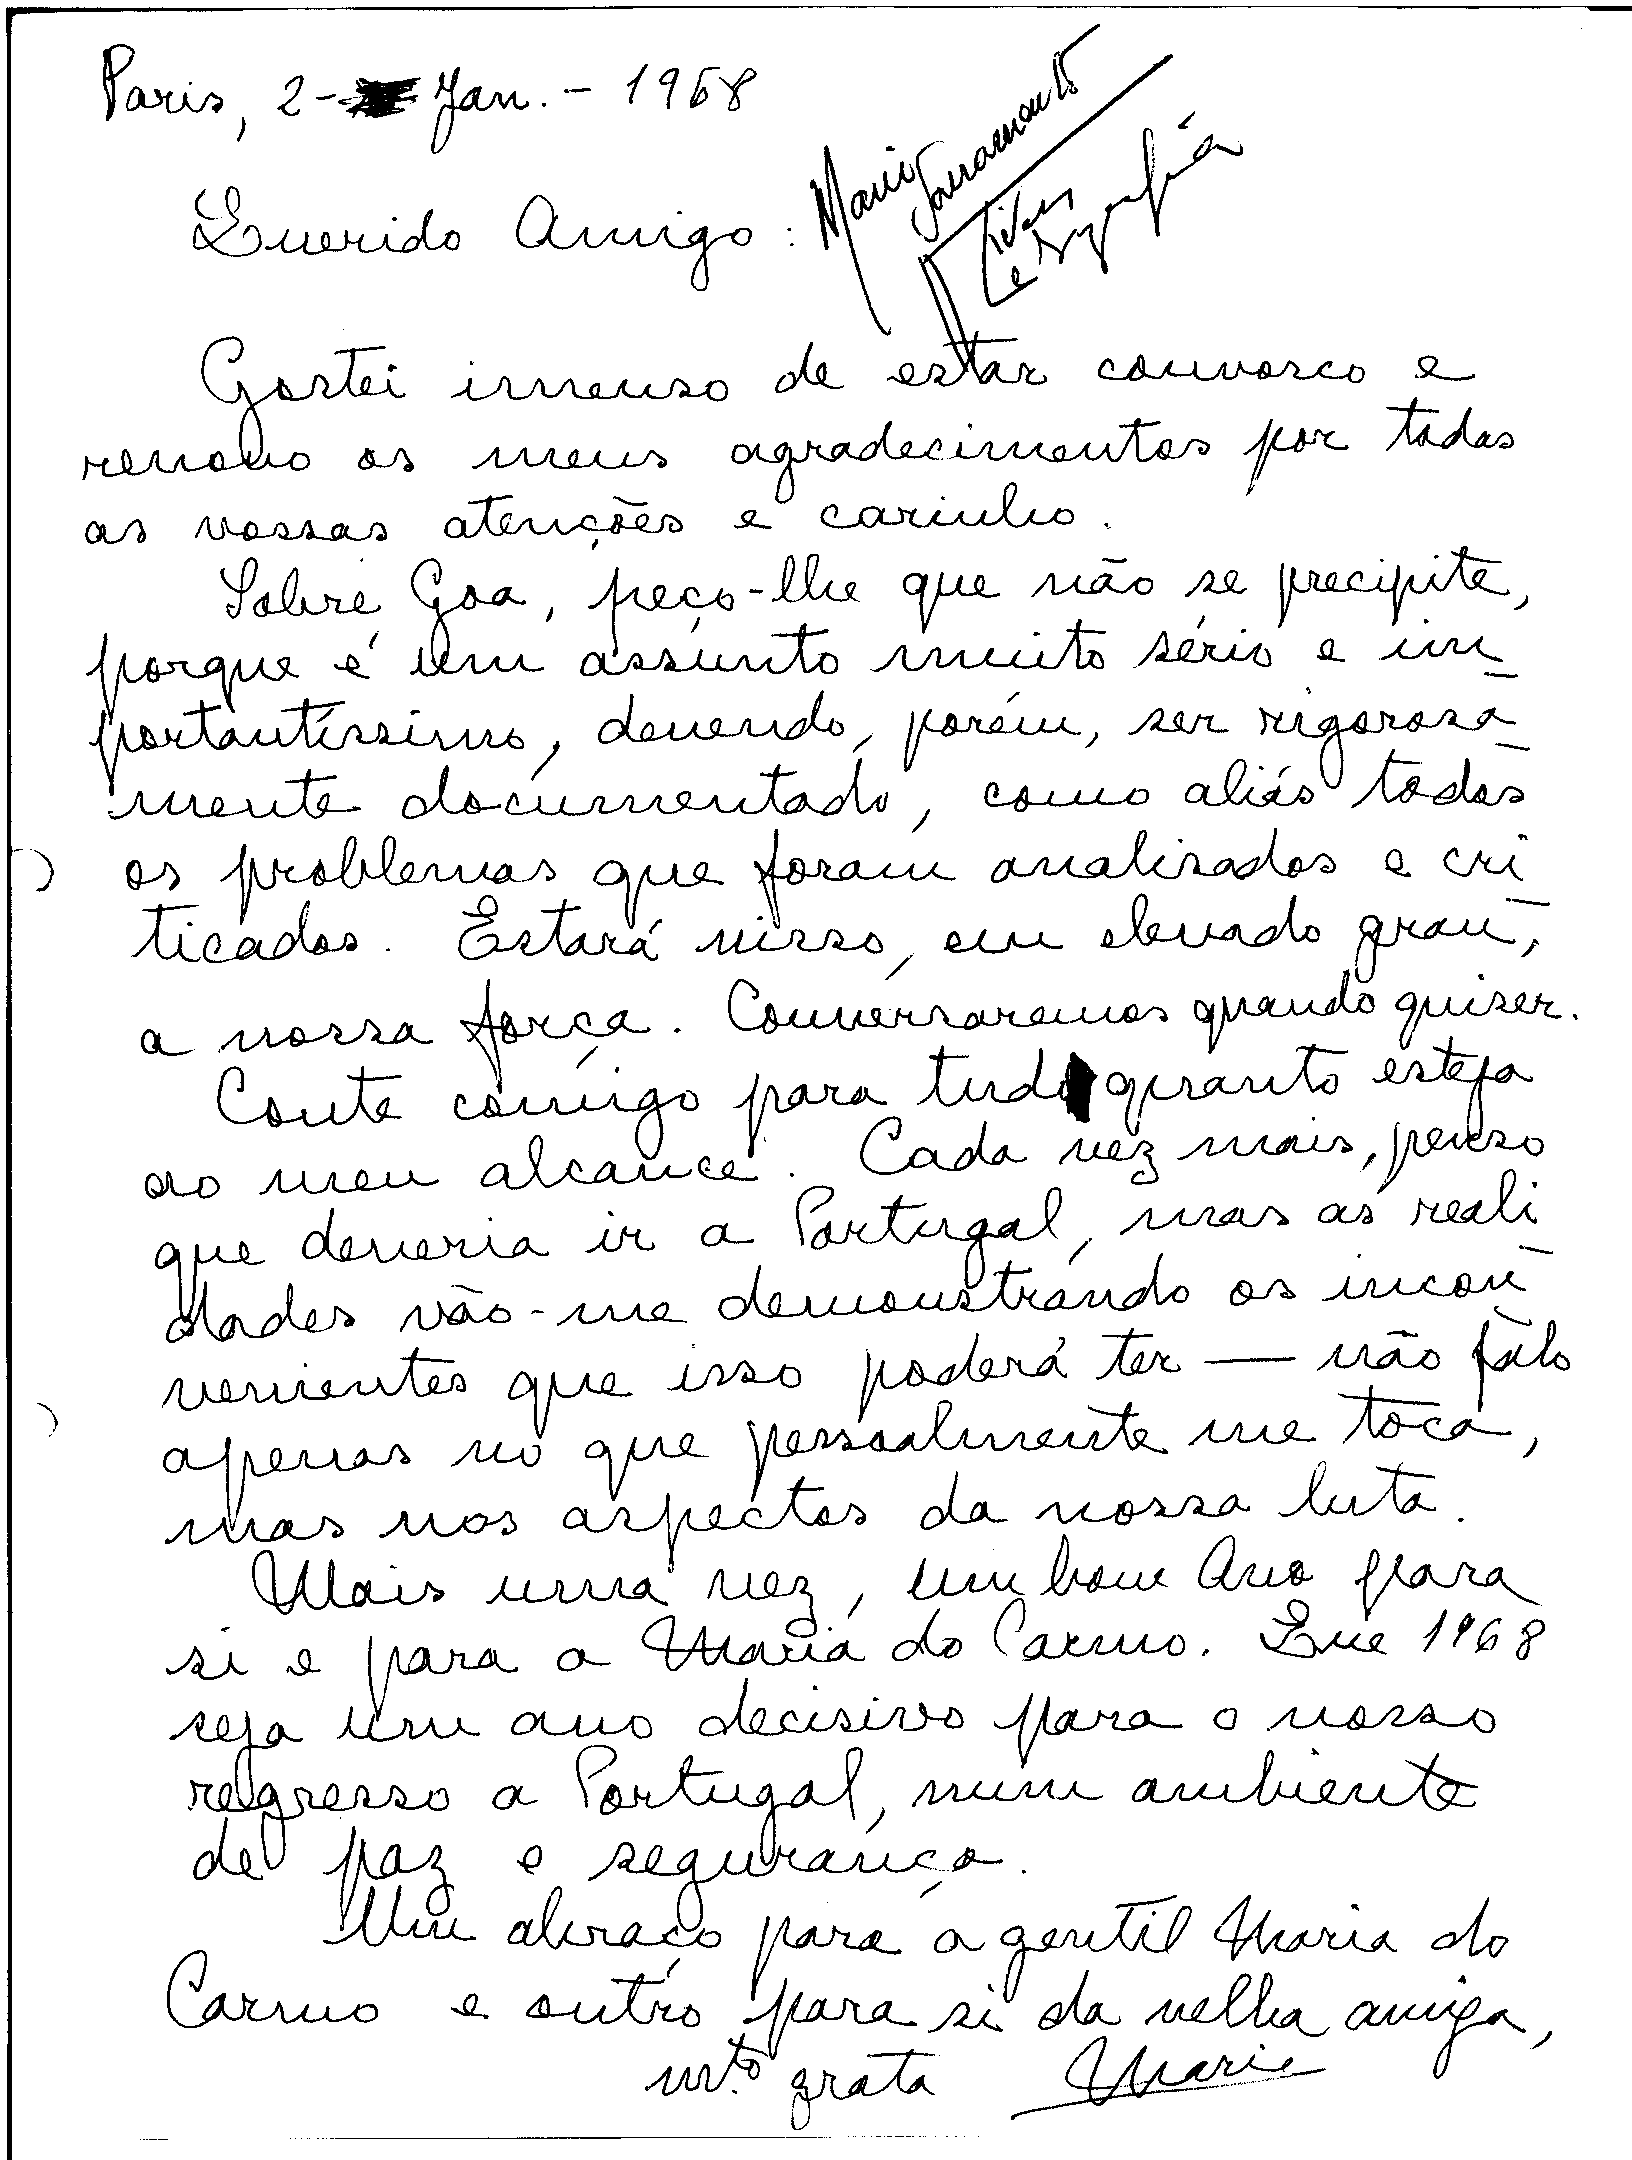 Paris, 2- Jan. - 1968
Maria
Sacramento
e
Querido Amigo:
Gostei imenso de estar convosco e
renovo os meus agradecimentos por todas
as vossas atenções e carinho.
Sobre Goa, peço-lhe que não se precipite,
porque é um assunto muito sério e im
portantíssimo, devendo, porém, ser rigorosa
mente documentado, como aliás todos
os problemas que foram analisados e cri
ticados. Estará nisso, em elevado grau,
a nossa força. Conversaremos quando quiser.
Conte comigo para tudo quanto esteja
ao meu alcance. Cada vez mais, penso
que deveria ir a Portugal, mas as reali
dades vão-me demonstrando os incon
venientes que isso poderá ter — não falo
apenas no que pessoalmente me toca,
mas nos aspectos da nossa luta.
Mais uma vez, um bom Ano para
si e para a Maria do Carmo. Que 1968
seja um ano decisivo para o nosso
regresso a Portugal, num ambiente
de paz e segurança.
Um abraço para a gentil Maria do
Carmo e outro para si da velha amiga,
m.to grata Maria